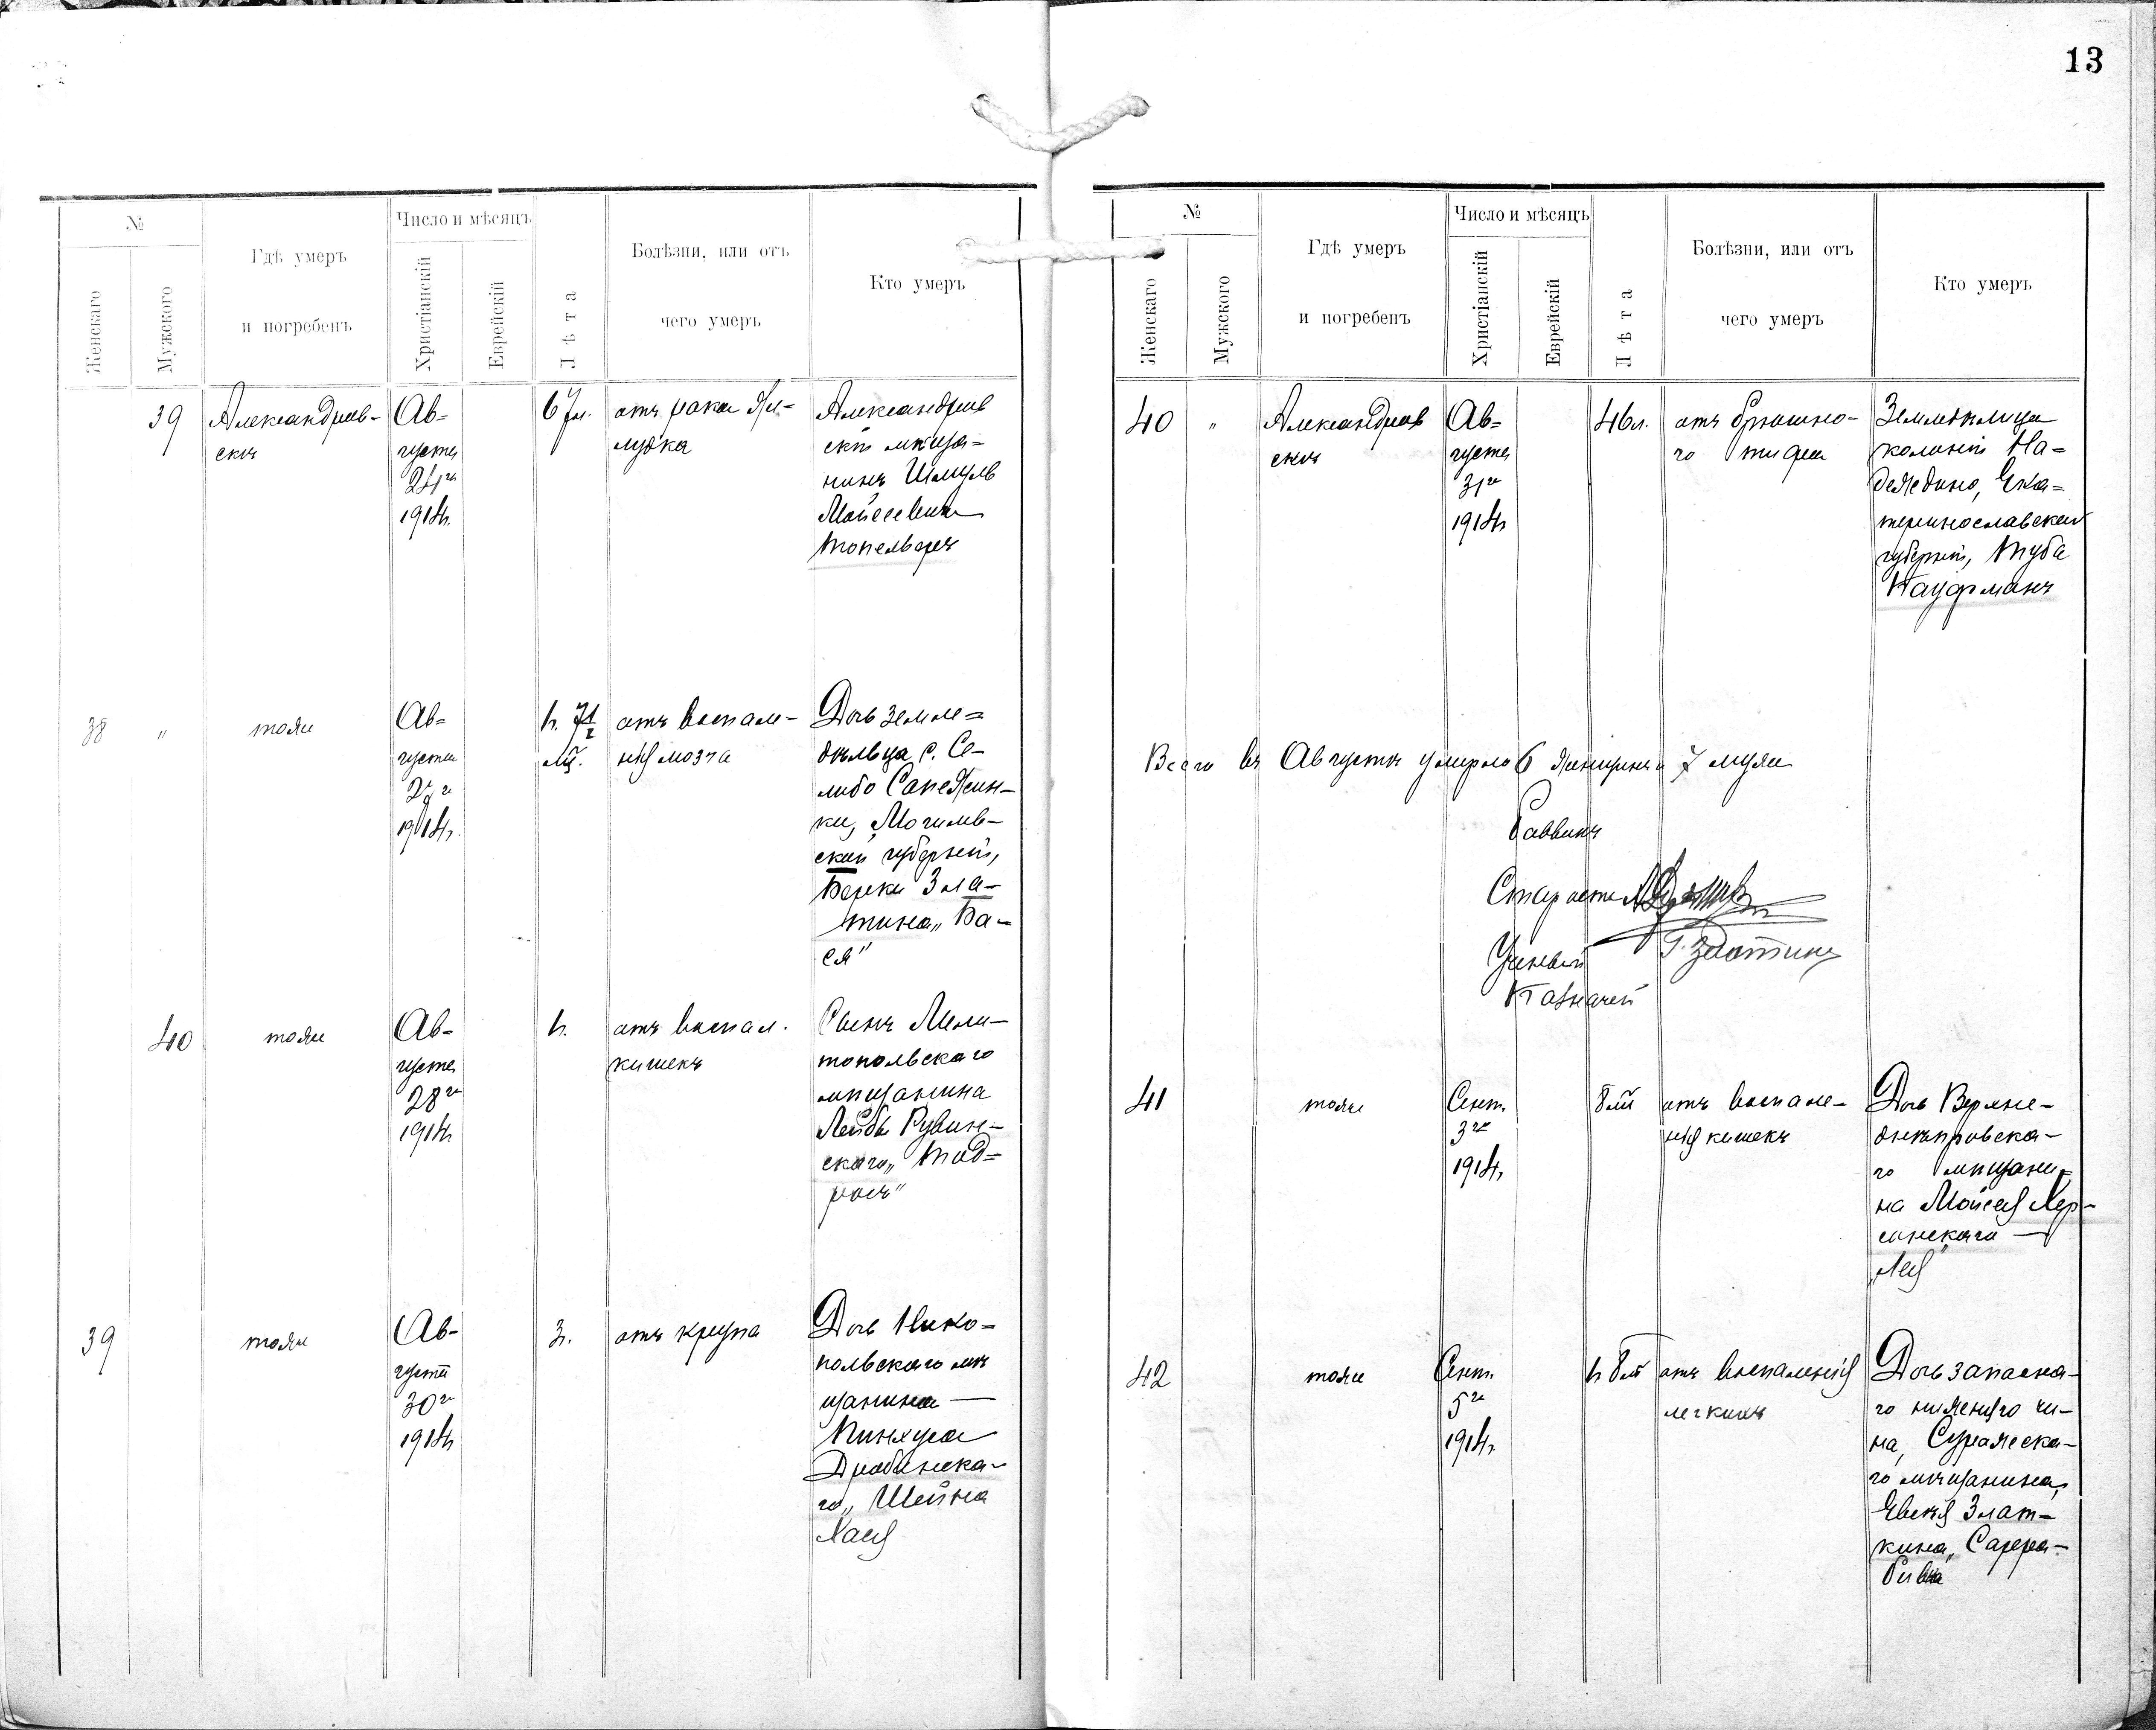 13
№
Женскаго
Мужского
Где умеръ
и погребенъ
Число и мѣсяцъ
Христіанскій
Еврейскій
Лѣта
Болѣзни, или отъ
чего умеръ
Кто умеръ
39
Александров-
скъ
Ав-
густа
24го
1914г.
67л.
отъ рака же-
лудка
Александров
скій мѣща-
нинъ Шмуль
Мойсеевичъ
38
"
тоже
Ав-
густа
1914г.
отъ воспале-
нія мозга
Дочь земле=
дѣльца, с. Се-
либо Сапежин-
ки, Могилев-
ской губерніи,
Берки Зла-
тина „Ба-
ся"
40
тоже
Ав-
густа
28го
1914г.
отъ воспал.
кишекъ
Сынъ Мели-
топольскаго
мѣщанина
Лейбы Рувин-
скаго „Тод=
росъ"
39
тоже
Ав-
густа
30го
1914г.
отъ крупа
Дочь Нико=
польскаго мѣ
щанина —
Пинхуса
Драбинска-
го „Шейна
Хася
№
Женскаго
Мужского
Гдѣ умеръ
и погребенъ
Число и мѣсяцъ
Христіанскій
Еврейскій
Лѣта
Болѣзни, или отъ
чего умеръ
Кто умеръ
40
"
Александров
скъ
Ав=
густа
31го
1914г.
46л.
отъ брюшно-
го тифа
Землевлдѣлица
колоніи На=
деждино, Ека=
теринославской
губерніи, Туба
Кауфманъ
Всего въ Августѣ умерло 6 женщинъ и 7 мужч
Раввинъ
Староста
Ученый Г. Златинъ
Казначей
41
тоже
Сент.
3го
1914г.
8м
отъ воспале-
нія кишекъ
Дочь Верхне-
днѣпровска-
го мѣщани-
на Мойсея Хер-
сонскаго —
„Лея
42
тоже
Сент.
5го
1914г.
отъ воспаленія
легкихъ
Дочь запасна-
го нижняго чи-
на, Суражска-
го мѣщанина,
Евсѣя Злат-
кина „Сарра-
Ривка